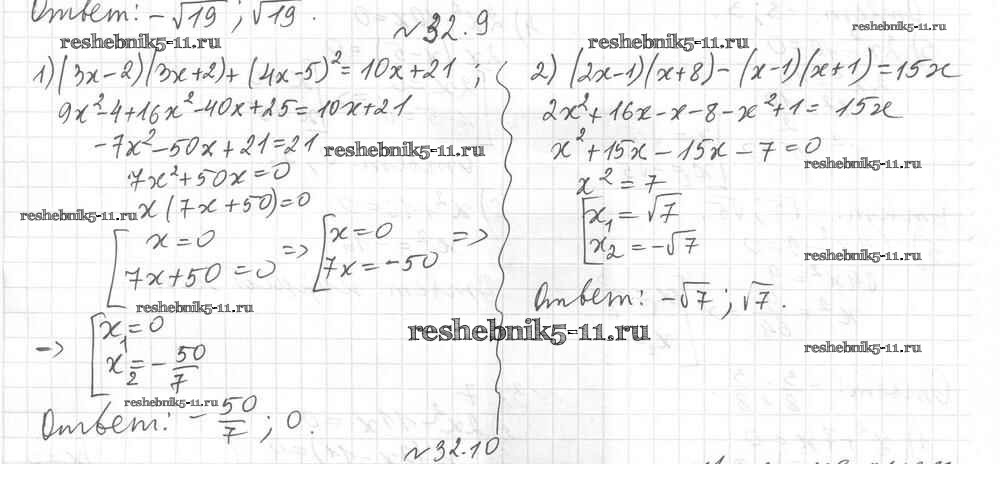 Ответ: -√19; √19.
№32.9
reshebnik5-11.ru
reshebnik5-11.ru
reshebnik5-11.ru
1) (3x-2)(3x+2)+(4x-5)²=10x+21;
9x²-4+16x²-40x+25=10x+21
-7x²-50x+21=21
reshebnik5-11.ru
7x²+50x=0
x(7x+50)=0
reshebnik5-11.ru
[x=0
7x+50=0 => [x=0
7x=-50 =>
reshebnik5-11.ru
-> [x₁=0
x₂=-50/7
reshebnik5-11.ru
Ответ: -50/7; 0.
2) (2x-1)(x+8)-(x-1)(x+1)=15x
2x²+16x-x-8-x²+1=15x
x²+15x-15x-7=0
reshebnik5-11.ru
x²=7
[x₁=√7
x₂=-√7
reshebnik5-11.ru
Ответ: -√7; √7.
reshebnik5-11.ru
reshebnik5-11.ru
№32.10